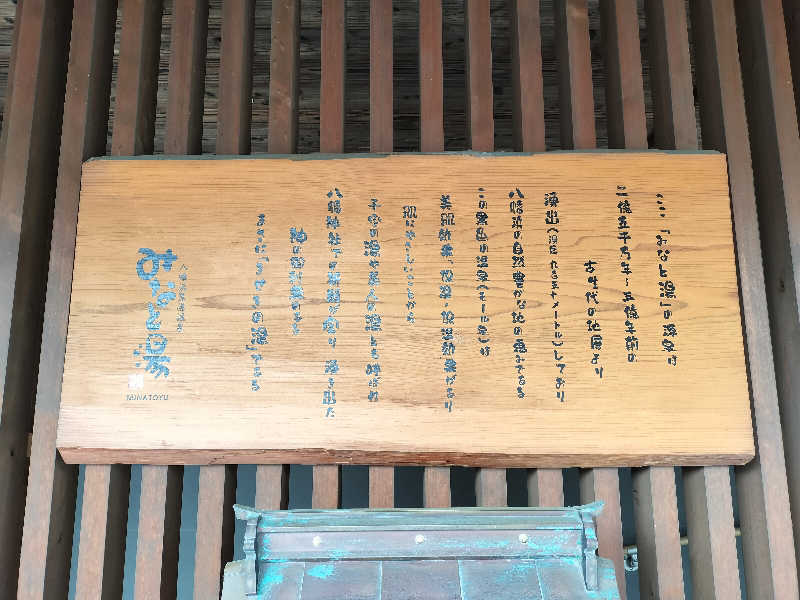 ここ「みなと湯」の源泉は
二億五千万年〜五億年前の
古生代の地層より
湧出(深度九百五十メートル)しており
八幡浜の自然豊かな地の恵みである
この黒色の温泉(モール泉)は
美肌効果、保湿・保温効果があり
肌にやさしいことから
子宝の湯や美人の湯とも呼ばれ
八幡神社下の断層が動り 湧き出た
神の御利益のある
まさに「うがきの湯」である
八幡浜黒湯温泉
みなと湯
MINATOYU